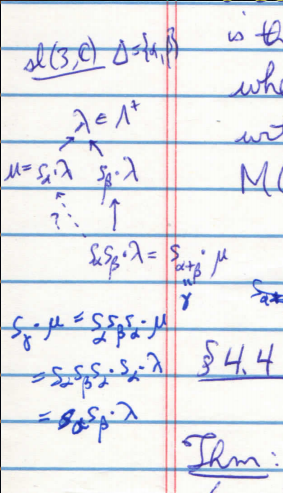 sl(3,C) Δ={α,β}
λ ∈ Λ⁺
μ = s_α·λ s_β·λ
?
s_α s_β·λ = s_{α+β}·μ
"
γ
s_γ·μ = s_α s_β s_α·μ
= s_α s_β s_α·s_α·λ
= s_α s_β·λ
is
wh
M(
§4.4
Thm: